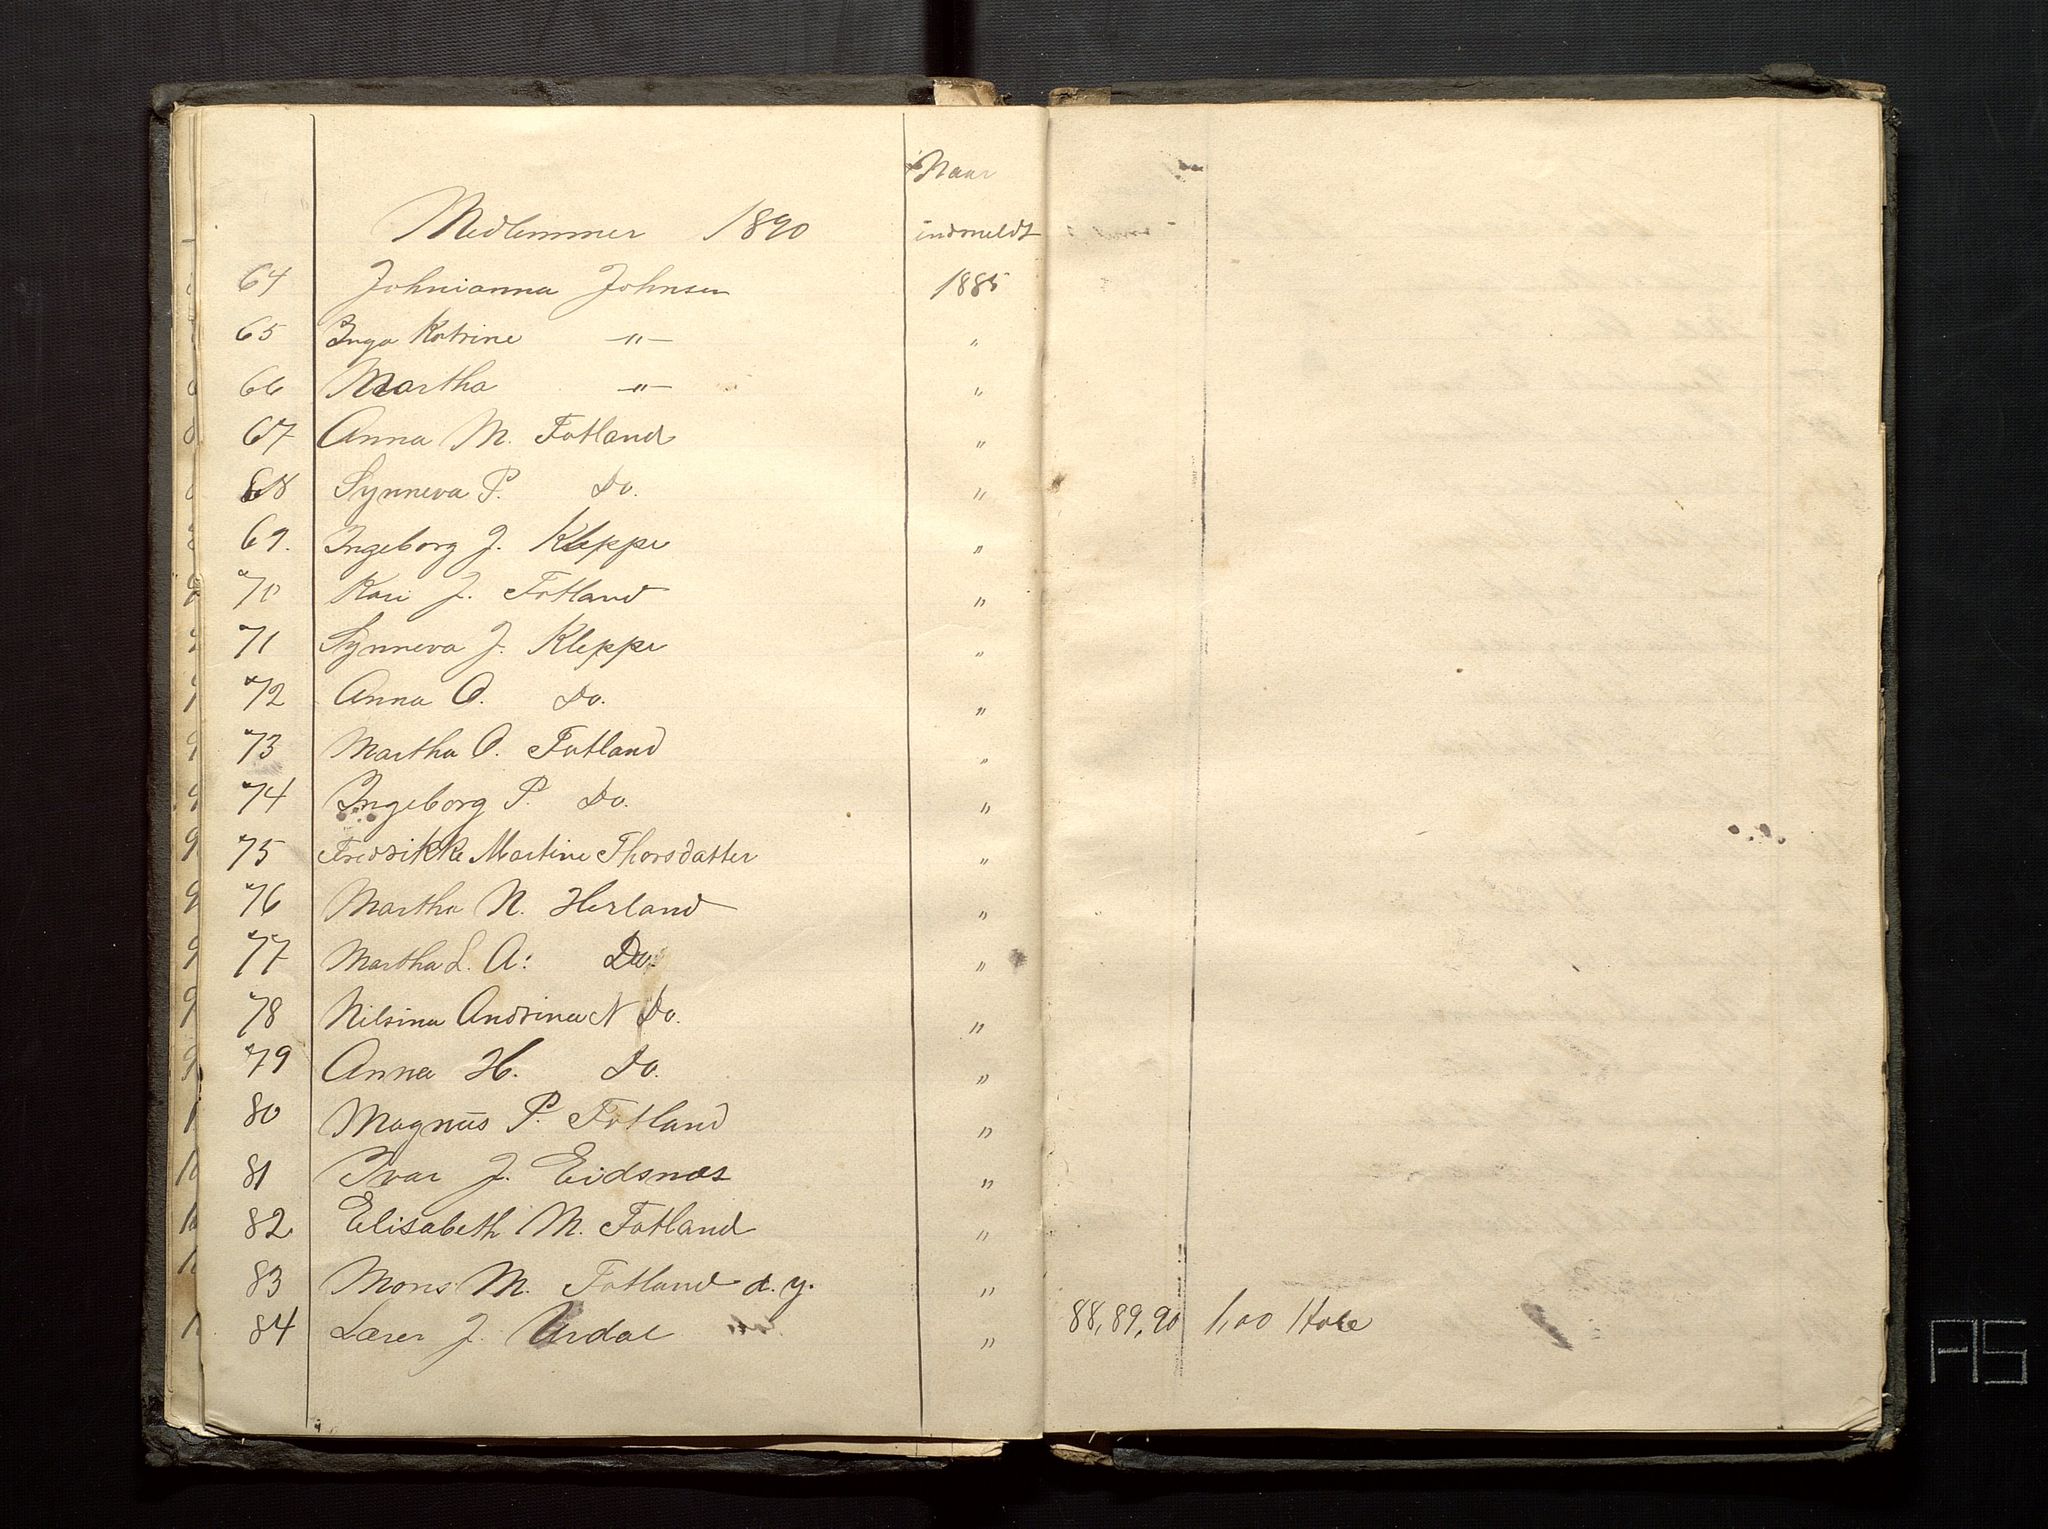 Naar
Medlemmer 1890 indmeldt
64 Johnianna Johnsen 1885
65 Inga Katrine -"- "
66 Martha -"- "
67 Anna M. Fotland "
68 Synneva P. Do. "
69. Ingeborg J. Kleppe "
70 Kari J. Fotland "
71 Synneva J. Kleppe "
72 Anna O. Do. "
73 Martha O. Fotland "
74 Ingeborg P. Do. "
75 Fredrikke Martine Thorsdatter "
76 Martha N. Herland "
77 Martha L. A: Do. "
78 Nilsina Andrina N Do. "
79 Anna H. Do. "
80 Magnus P. Fotland "
81 Ivar J. Eidsnæs "
82 Elisabeth M. Fotland "
83 Mons M. Fotland d. y. "
84 Lærer J. Urdal "
88, 89, 90 1,00
A5